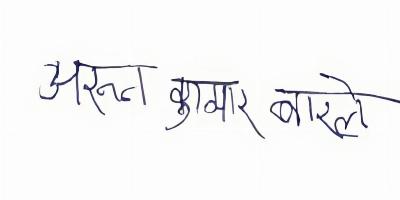 अरुन कुमार बारले